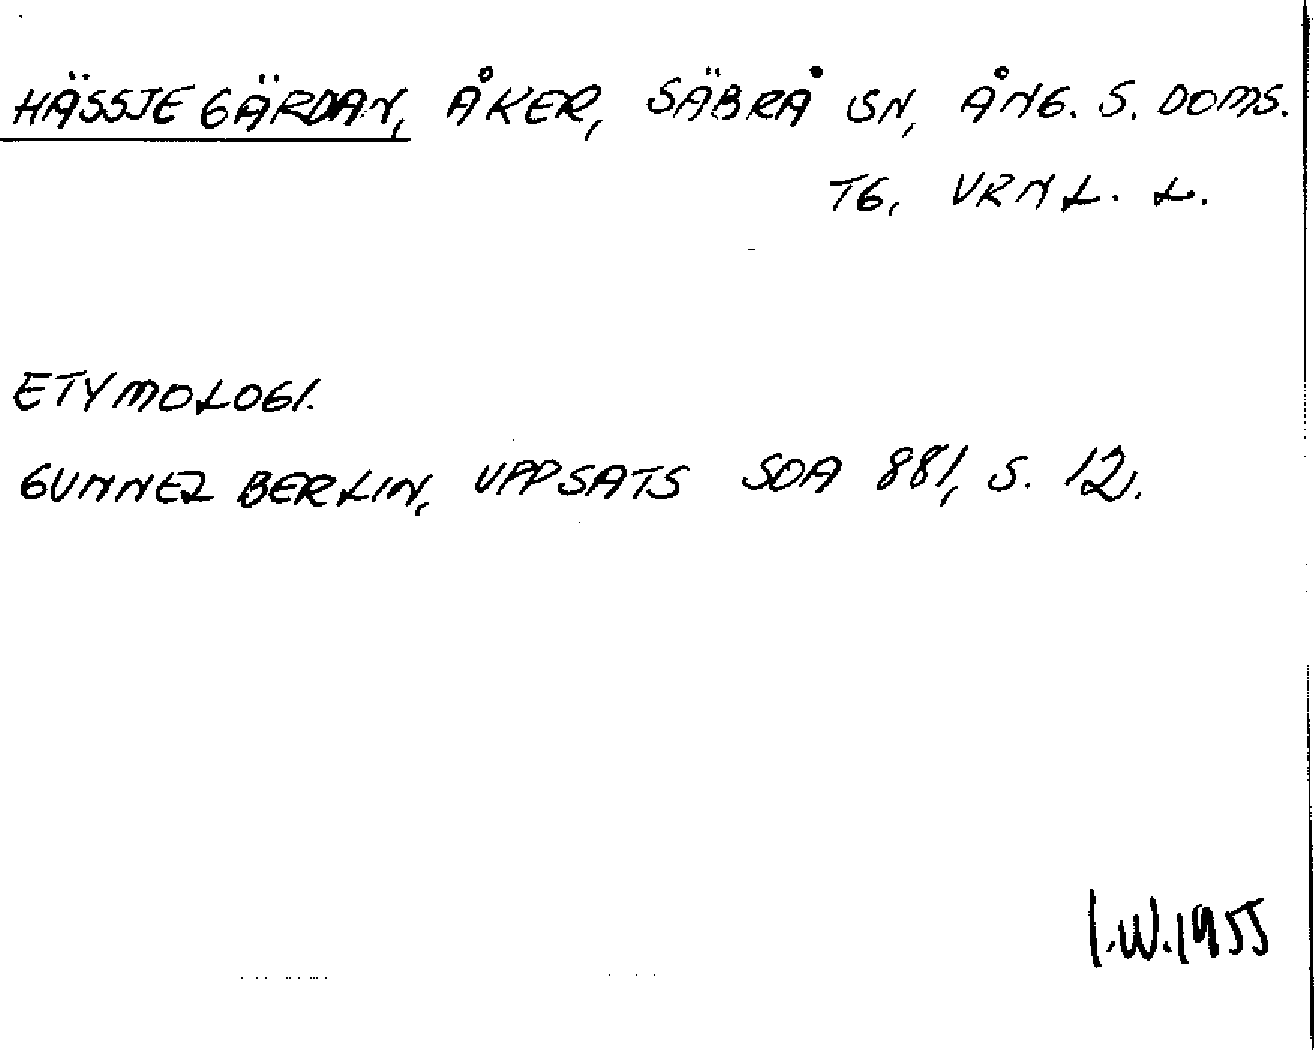 HÄSSJEGÄRDAN, ÅKER, SÄBRÅ SN, ÅNG. S. DOMS.
TG, VRNL. L.
ETYMOLOGI.
GUNNEL BERLIN, UPPSATS SOA 881, S. 12.
I.W.1955